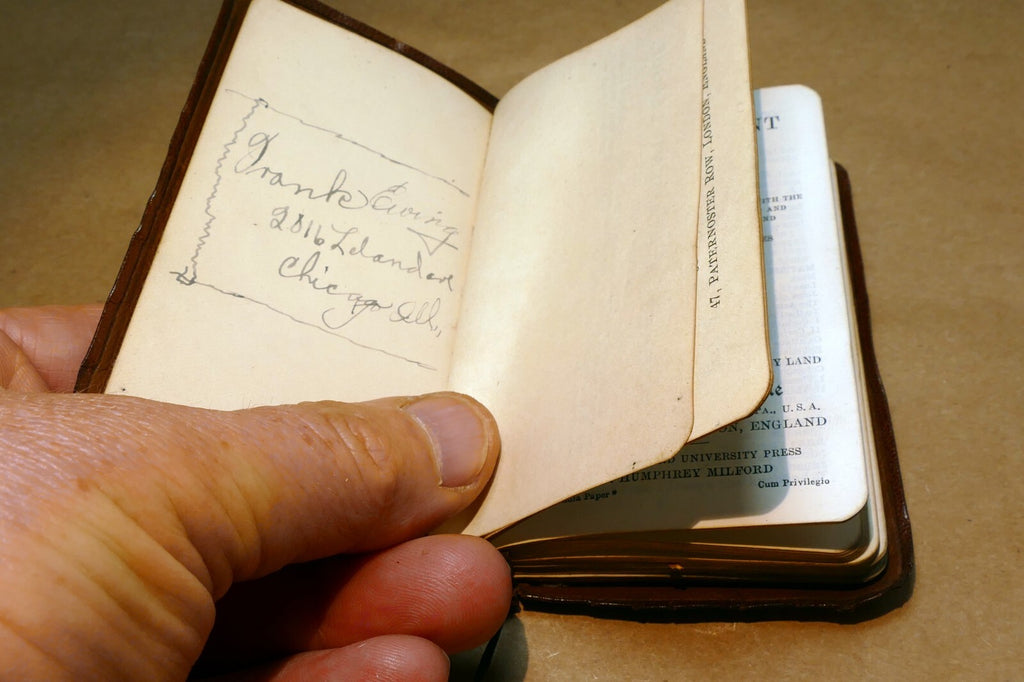 Frank Ewing
2016 Leland ave
Chicago Ill.,
47, PATERNOSTER ROW, LONDON, ENGLAND
NT
WITH THE
AND
ND
ES
Y LAND
PA., U. S. A.
ON, ENGLAND
UNIVERSITY PRESS
HUMPHREY MILFORD
Paper*
Cum Privilegio